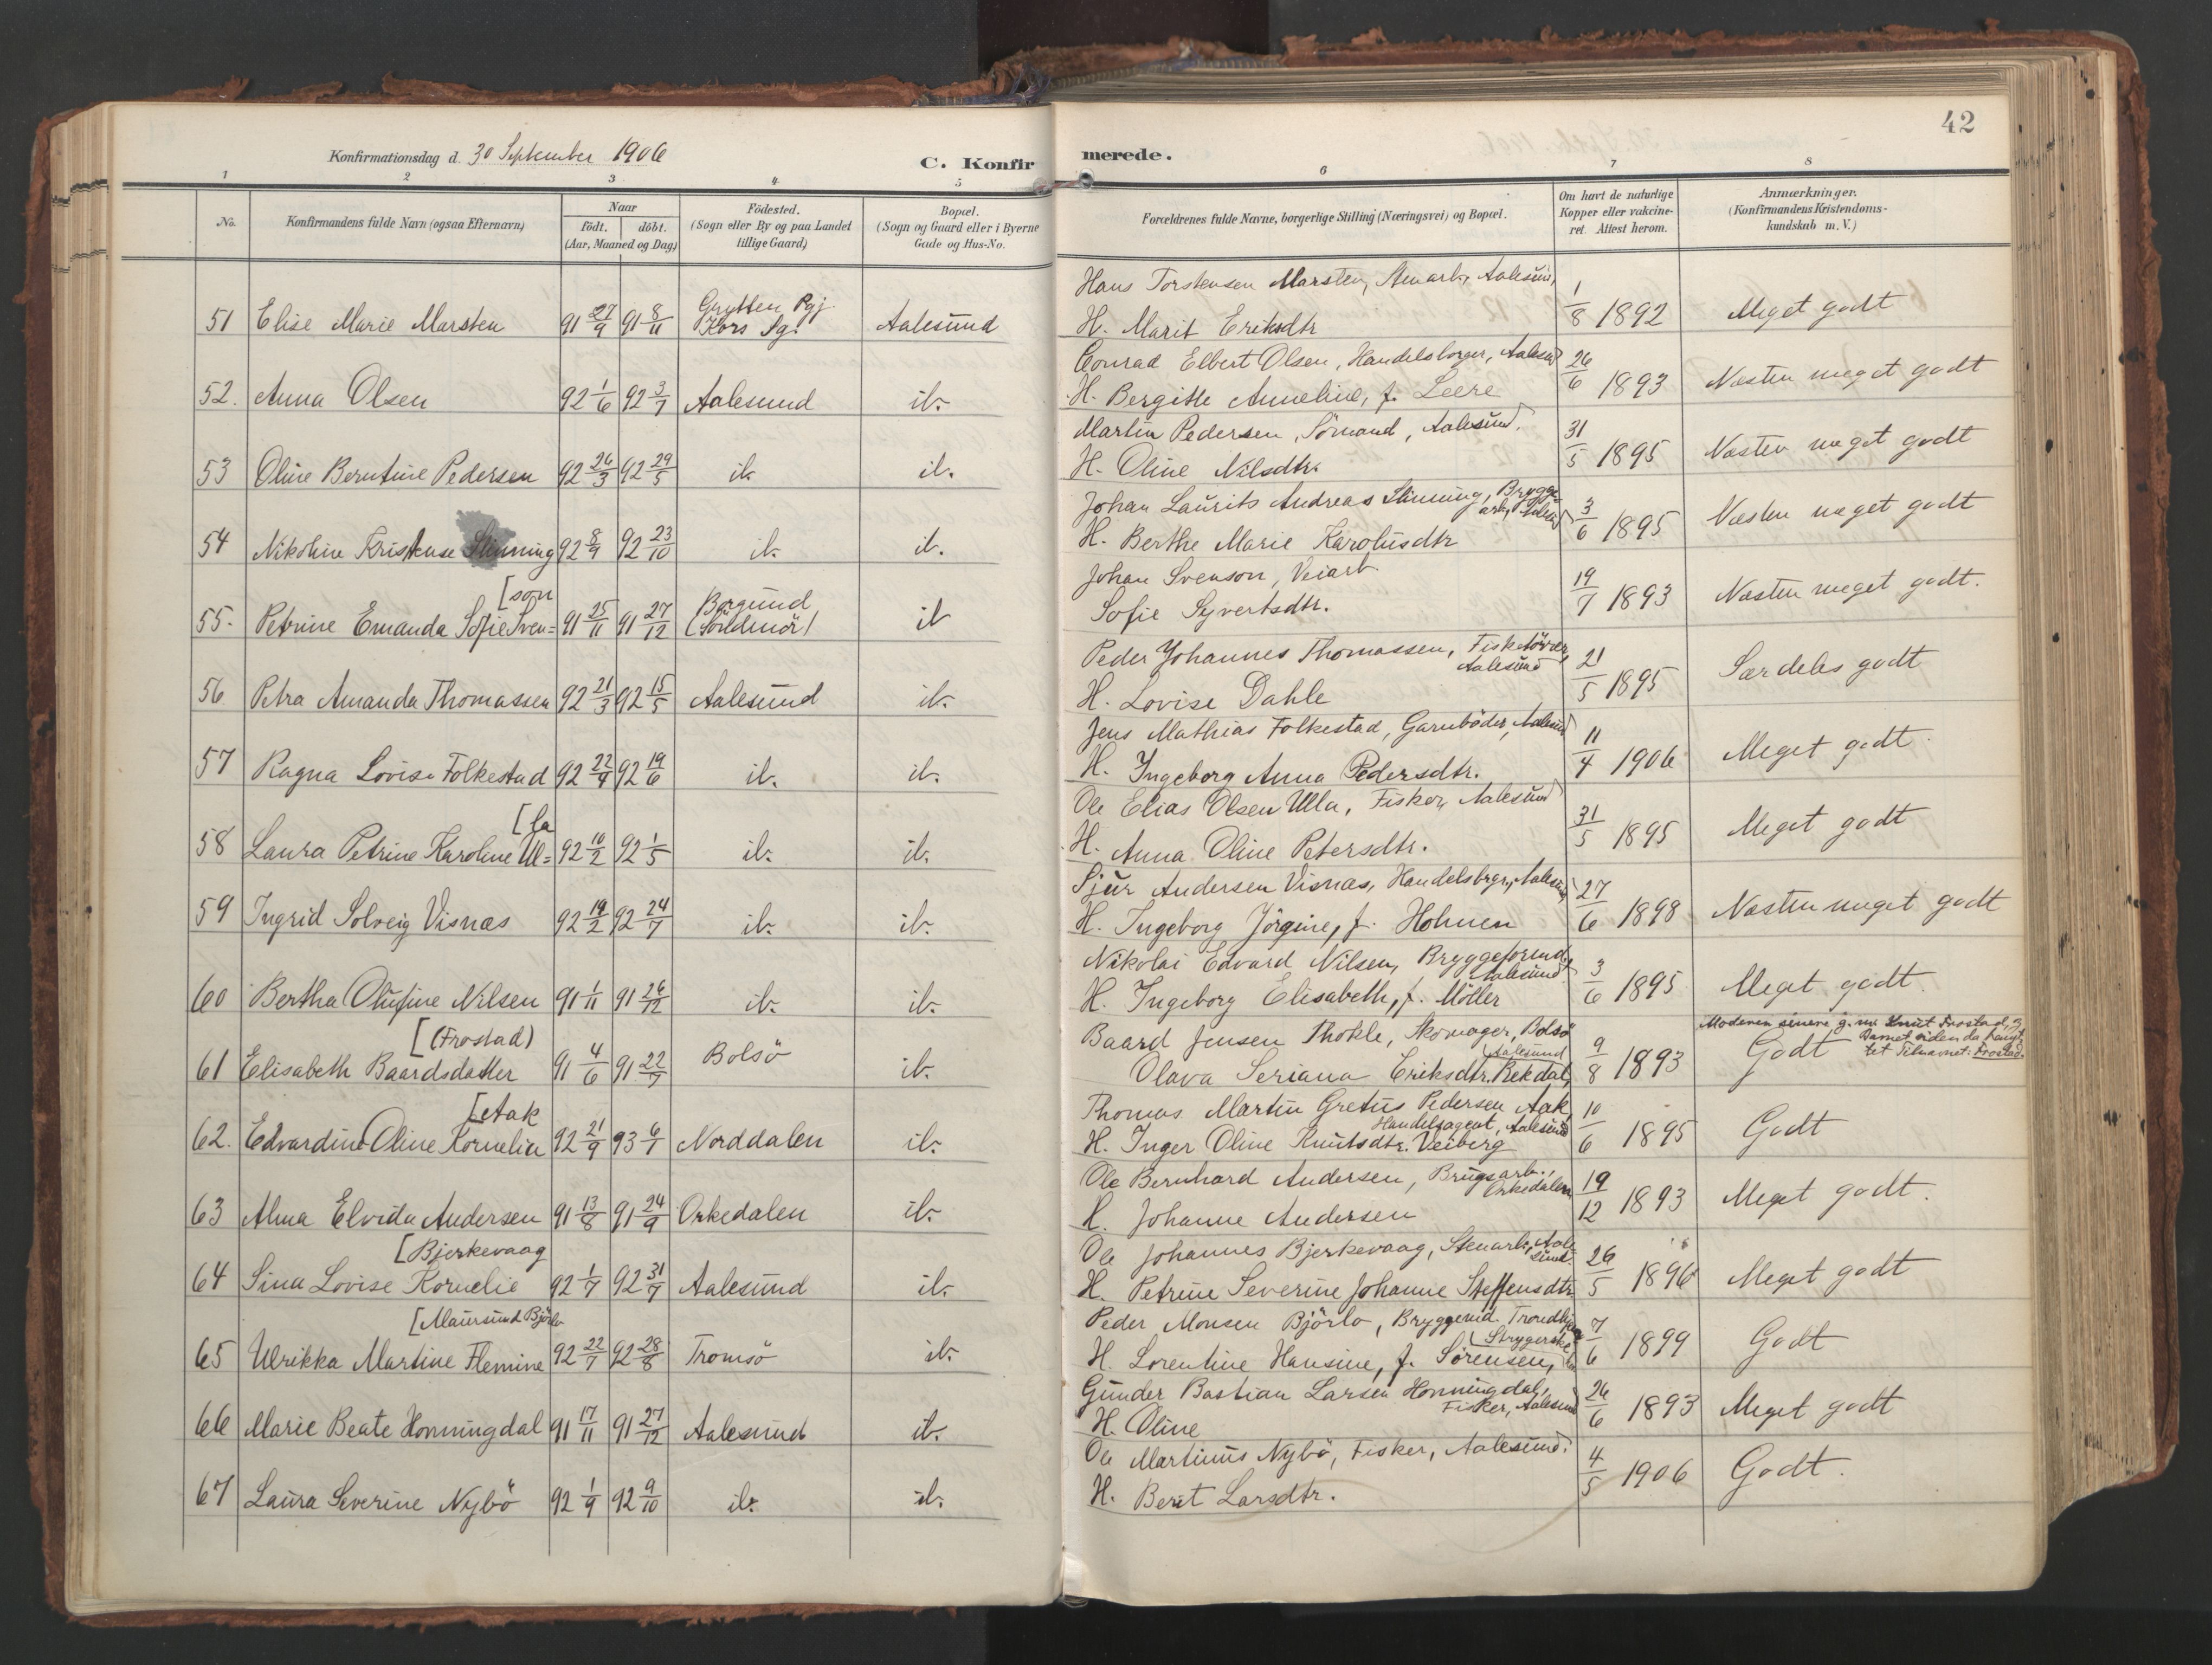 42
Konfirmationsdag d. 30 September 1906
C. Konfirmerede.
1 2 3 4 5 6 7 8
No.
Konfirmandens fulde Navn (ogsaa Efternavn)
Naar
født. døbt.
(Aar, Maaned og Dag)
Födested.
(Sogn eller By og paa Landet
tillige Gaard)
Bopæl.
(Sogn og Gaard eller i Byerne
Gade og Hus-No.
Forældrenes fulde Navne, borgerlige Stilling (Næringsvei) og Bopæl.
Om havt de naturlige
Kopper eller vakcine-
ret Attest herom.
Anmærkninger.
(Konfirmandens Kristendoms-
kundskab m. V.)
51 Elise Marie Marsten 91 27/9 91 8/11 Grytten Pgj. Kors Sg. Aalesund
Hans Torstensen Marsten, Stenarb., Aalesund,
H. Marit Eriksdtr 1/8 1892 Meget godt
52. Anna Olsen 92 1/6 92 3/7 Aalesund ib.
Conrad Elbert Olsen, Handelsborger, Aalesund
H. Bergitte Anneline, f. Leere 26/6 1893 Næsten meget godt
53 Oline Berntine Pedersen 92 26/3 92 29/5 ib. ib.
Martin Pedersen, Sömand, Aalesund.
H. Oline Nilsdtr. 31/5 1895 Næsten meget godt
54 Nikoline Kristense Slinning 92 8/9 92 23/10 ib. ib.
Johan Laurits Andreas Slinning, Brygge-
arb., Aalesund
H. Berthe Marie Karolusdtr 3/6 1895 Næsten meget godt
[son
55. Petrine Emanda Sofie Sven= 91 25/11 91 27/12 Borgund (Söndmör) ib
Johan Svenson, Veiarb.
Sofie Syvertsdtr. 19/7 1893 Næsten meget godt.
56 Petra Amanda Thomassen 92 21/3 92 15/5 Aalesund ib.
Peder Johannes Thomassen, Fisketörver,
Aalesund
H. Lovise Dahle 21/5 1895 Særdeles godt
57 Ragna Lovise Folkestad 92 22/4 92 19/6 ib. ib.
Jens Mathias Folkestad, Garnböder, Aalesund
H. Ingeborg Anna Pedersdtr. 11/4 1906 Meget godt.
[la
58 Laura Petrine Karoline Ul= 92 10/2 92 1/5 ib. ib.
Ole Elias Olsen Ulla, Fisker, Aalesund
H. Anna Oline Petersdtr. 31/5 1895 Meget godt
59 Ingrid Solveig Visnæs 92 19/2 92 24/7 ib. ib.
Sjur Andersen Visnæs, Handelsbrgr., Aalesund
H. Ingeborg Jörgine, f. Holmen 27/6 1898 Næsten meget godt
60 Bertha Olufine Nilsen 91 1/11 91 26/12 ib. ib.
Nikolai Edvard Nilsen, Bryggeformd.
Aalesund
H. Ingeborg Elisabeth, f. Möller 3/6 1895 Meget godt.
[(Frostad)
61 Elisabeth Baardsdatter 91 4/6 91 22/7 Bolsö ib.
Baard Jensen Thokle, Skomager, Bolsö
(Aalesund
Olava Seriana Eriksdtr. Rekdal, 9/8 1893 Godt
Moderen senere g. m. Knut Frostad, og
Barnet siden da havt
tet Tilnavnet: Frostad.
[Aak
62. Edvardine Oline Kornelia 92 21/9 93 6/1 Norddalen ib.
Thomas Martin Gretus Pedersen Aak,
Handelsagent, Aalesund
H. Inger Oline Knutsdtr. Veiberg 10/6 1895 Godt
63 Alma Elvida Andersen 91 13/8 91 24/9 Orkedalen ib.
Ole Bernhard Andersen, Brugsarb.,
Orkedalen
H. Johanne Andersen 19/12 1893 Meget godt.
[Bjerkevaag
64 Sina Lovise Kornelie 92 1/7 92 31/7 Aalesund ib.
Ole Johannes Bjerkevaag, Stenarb., Aale-
sund.
H. Petrine Severine Johanne Steffensdtr. 26/5 1896 Meget godt
[Maursund Björlo
65 Ulrikka Martine Flemine 92 22/7 92 28/8 Tromsö ib.
Peder Monsen Björlo, Bryggemd. Trondhjem
(Strygerske
H. Lorentine Hansine, f. Sörensen, 7/6 1899 Godt
66 Marie Beate Honningdal 91 17/11 91 27/12 Aalesund ib.
Gunder Bastian Larsen Honningdal,
Fisker, Aalesund
H. Oline 26/6 1893 Meget godt
67 Laura Severine Nybö 92 1/9 92 9/10 ib. ib.
Ole Martinus Nybö, Fisker, Aalesund.
H. Berit Larsdtr. 4/5 1906 Godt.